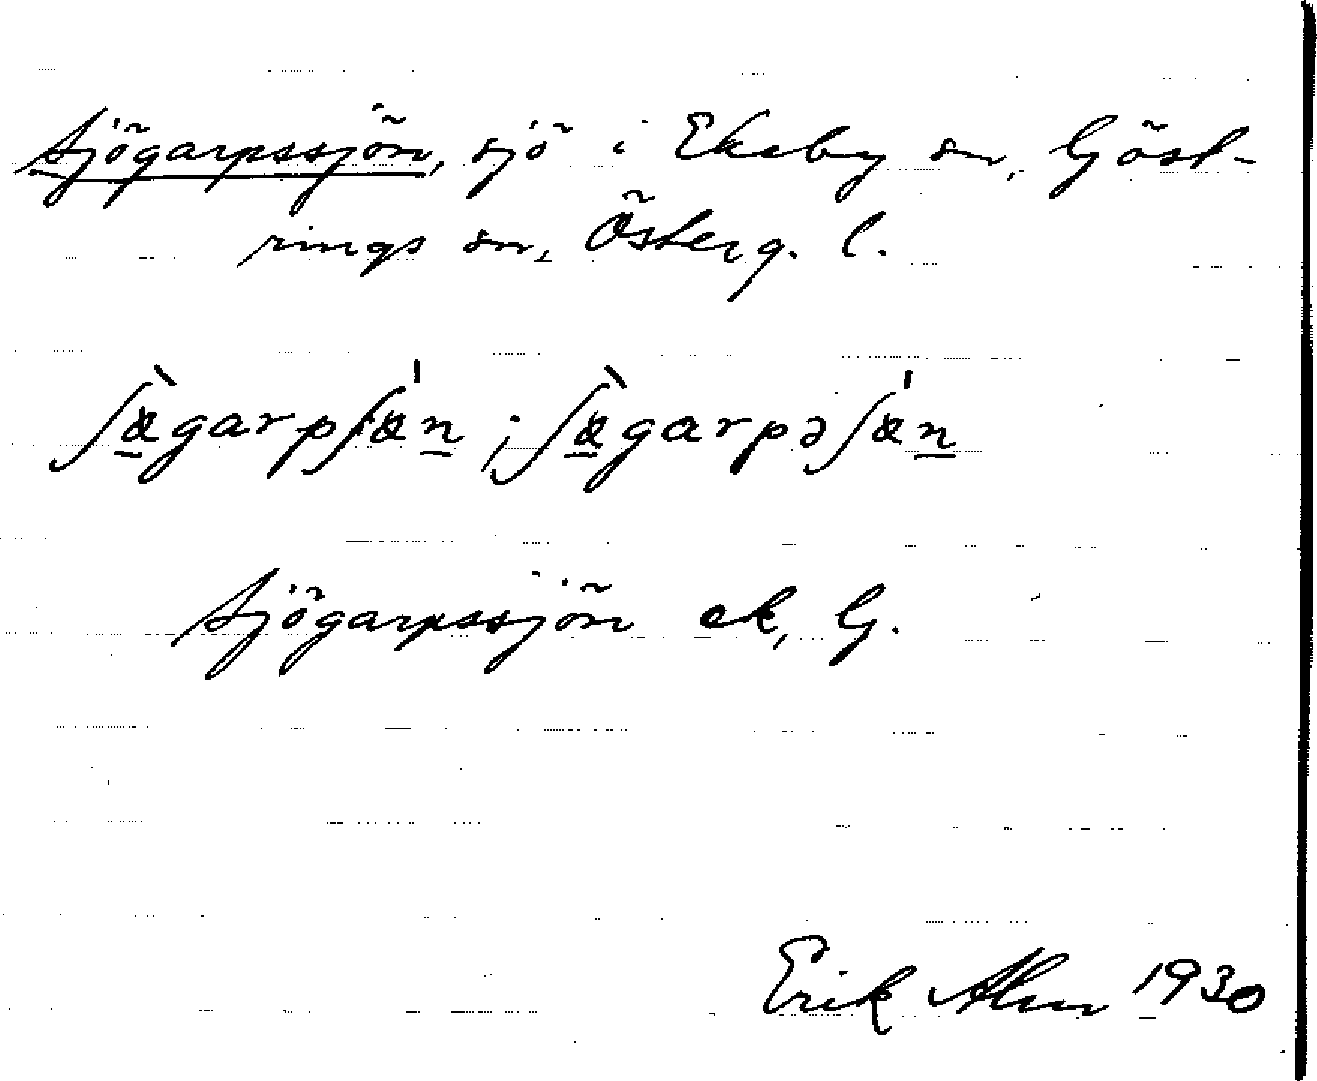 Sjögarpssjön, sjö i Ekeby sn, Göst-
rings sn, Österg. l.
ʃæ̠̀garpʃæ̍n̠ ; ʃæ̠̀garpəʃæ̍n̠
Sjögarpssjön ek, G.
Erik Alm 1930